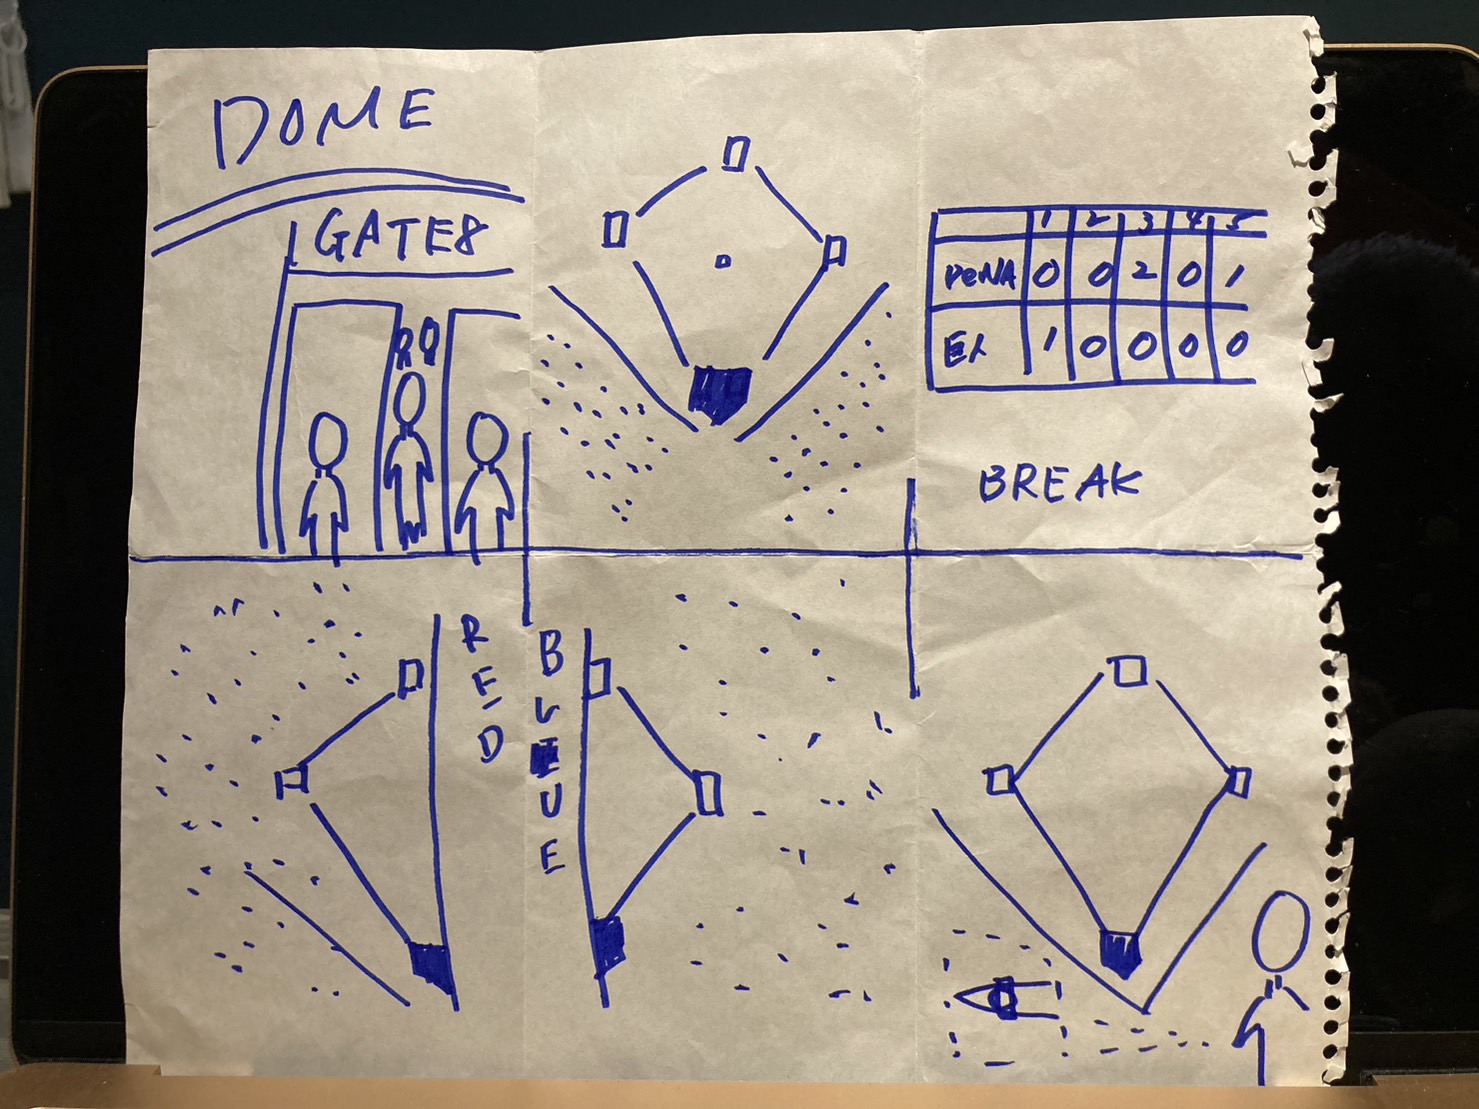 DOME
GATE8
1 2 3 4 5
DeNA 0 0 2 0 1
巨人 1 0 0 0 0
BREAK
RED
BLUE